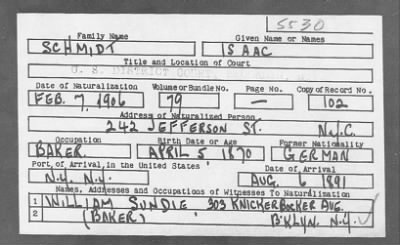 5530
Family Name Given Name or Names
SCHMIDT ISAAC
Title and Location of Court
U. S. DISTRICT COURT,
Date of Naturalization Volume or Bundle No. Page No. Copy of Record No.
FEB. 7, 1906 79 — 102
Address of Naturalized Person
242 JEFFERSON ST. N.Y.C.
Occupation Birth Date or Age Former Nationality
BAKER APRIL 5 1870 GERMAN
Port of Arrival in the United States Date of Arrival
N.Y. N.Y. AUG. 6 1891
Names, Addresses and Occupations of Witnesses To Naturalization
1 WILLIAM SUNDIE 303 KNICKERBOCKER AVE.
2 (BAKER) B'KLYN. N.Y.